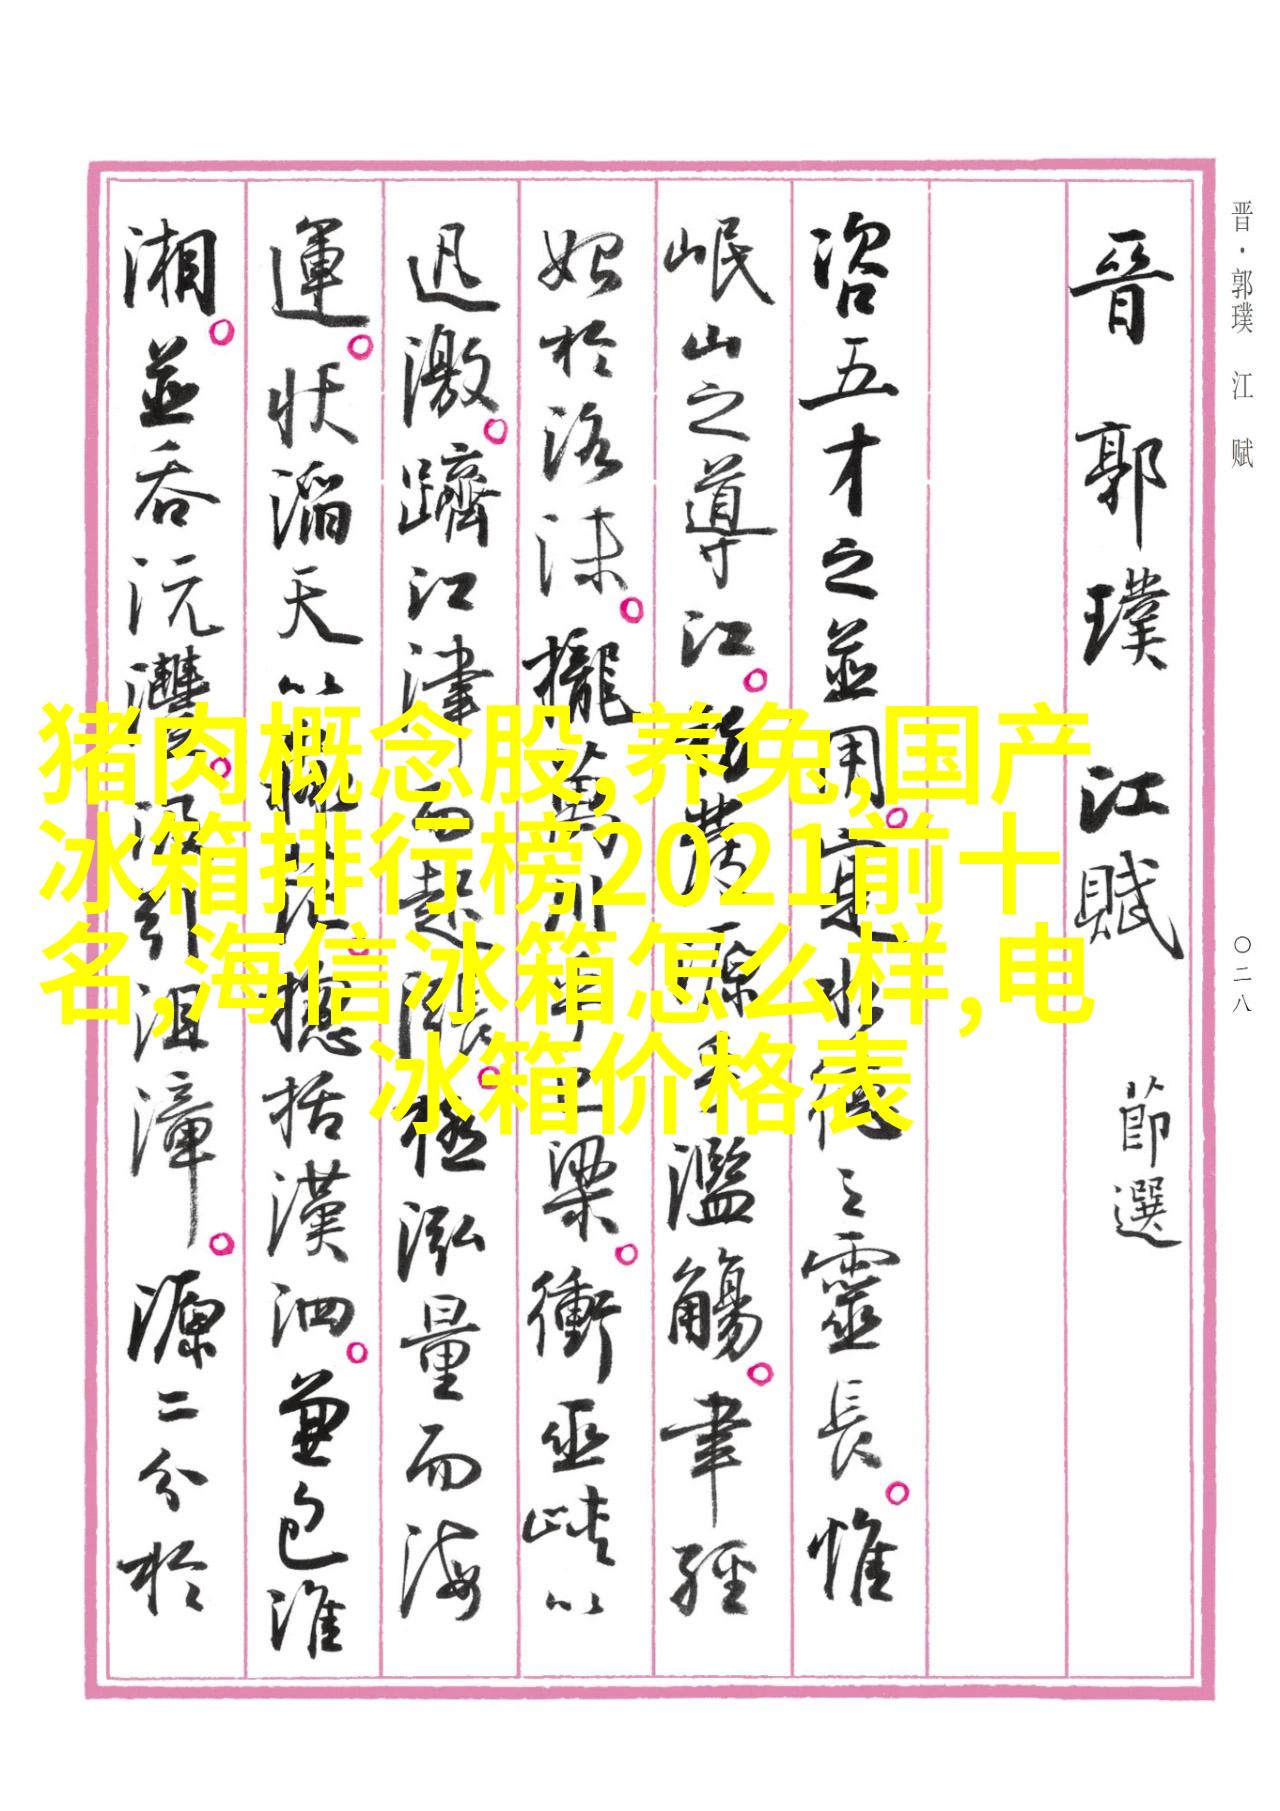 晋·郭璞 江 赋
〇二八
晉郭璞江賦 節選
咨五才之並用寔水德之靈長惟
岷山之導江初發源乎濫觴聿經
始於洛沬攏萬川乎巴梁衝巫峽以
迅激躋江津而起漲極泓量而海
運狀滔天以淼茫揔括漢泗兼包淮
湘並吞沅澧汲引沮漳源二分於
猪肉概念股,养兔,国产
冰箱排行榜2021前十
名,海信冰箱怎么样,电
冰箱价格表